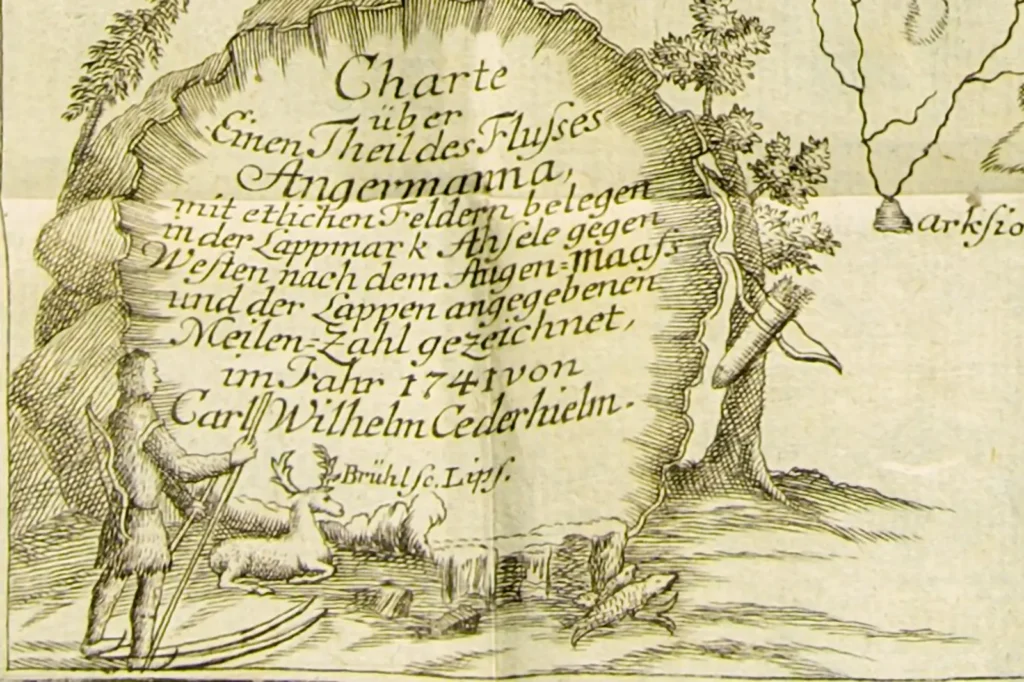 Charte
über
Einen Theil des Flusses
Angermanna,
mit etlichen Feldern belegen
in der Lappmark Ahsele gegen
Westen nach dem Augen=Maass
und der Lappen angegebenen
Meilen=Zahl gezeichnet,
im Jahr 1741 von
Carl Wilhelm Cederhielm.
Brühl sc. Lips.